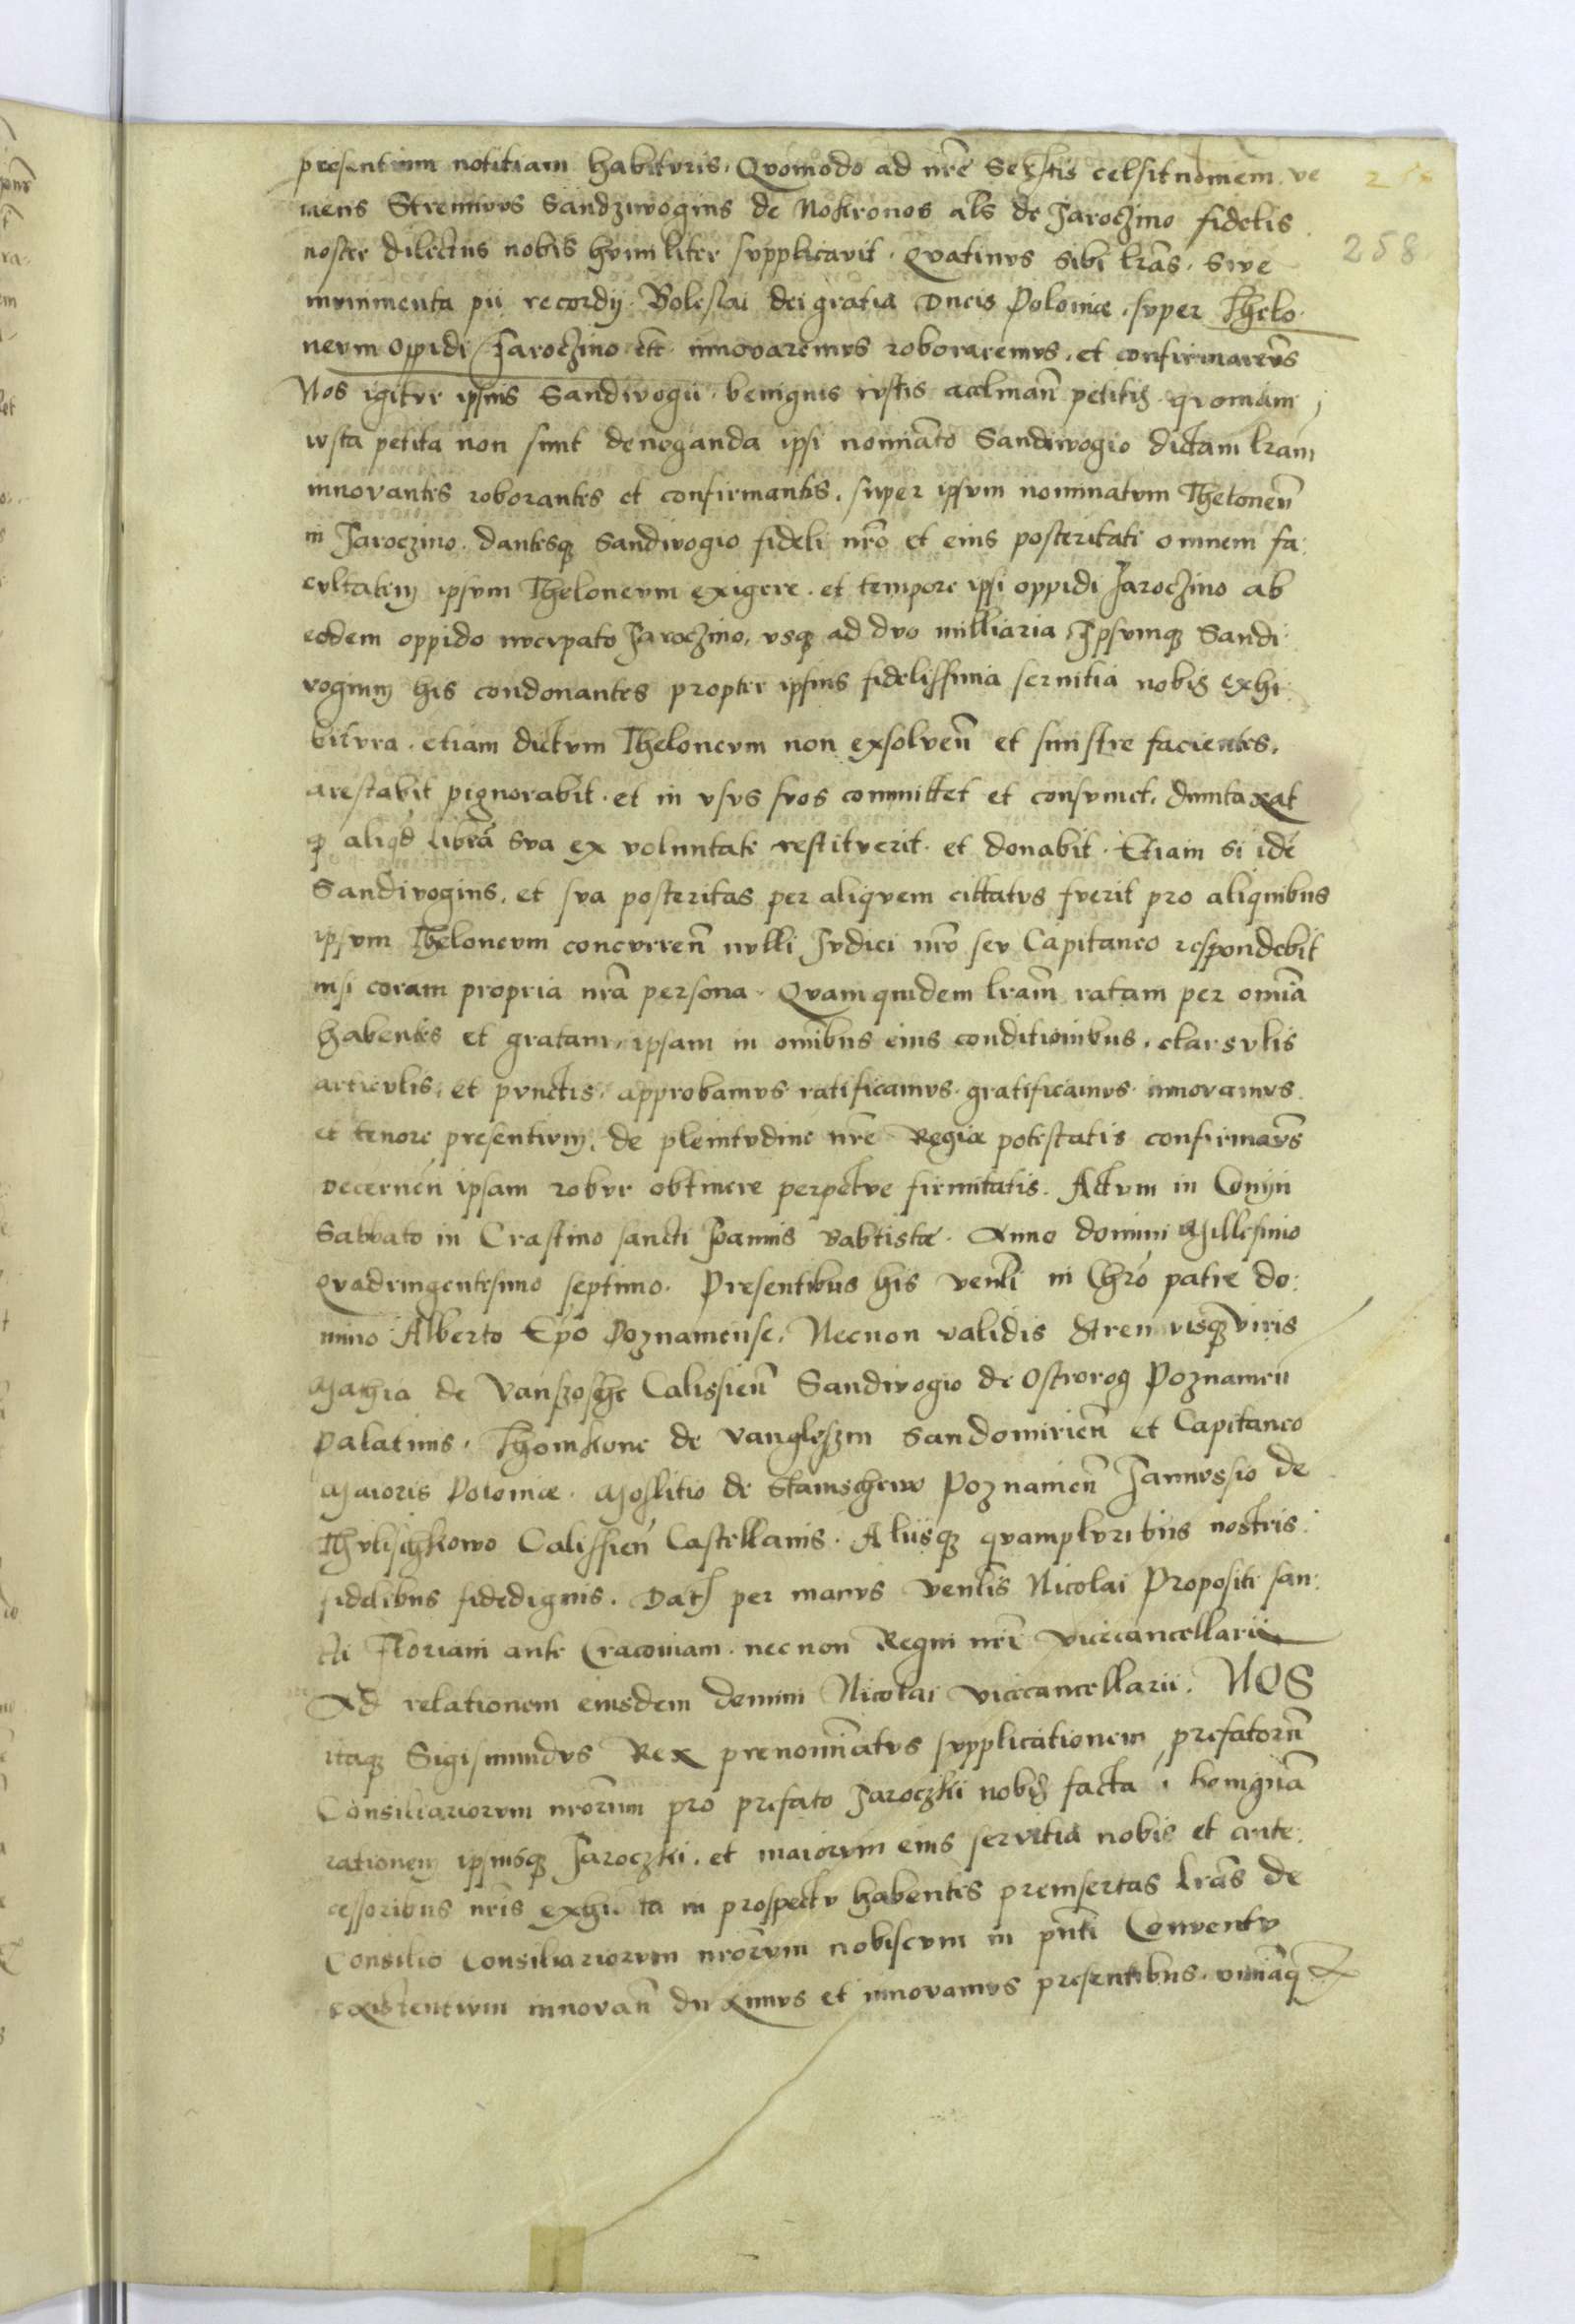 presentium notitiam habituris. Quomodo ad nrẽ Serẽtis celsitudinem. ve 
niens Strenuus Sandziwogius de Nokronos als de Jaroczino fidelis
noster dilectus nobis humiliter supplicavit. Quatinus sibi lrãs. Sive 258
munimenta pii recordij. Boleslai dei gratia Ducis Poloniæ. super Thelo
neum Oppidi Jaroczino etc innovaremus roboraremus. et confirmarem̃s
Nos igitur ipsius Sandivogii benignis iustis petitis quoniam
iusta petita non sunt deneganda ipsi nomiãto Sandivogio dictam lram
innovantes roborantes et confirmantes. super ipsum nominatum Theloneũ
in Jaroczino. dantesq; Sandivogio fideli nrõ et eius posteritati omnem fa:
cultatem ipsum Theloneum exigere. et tempore ipsi oppidi Jaroczino ab
eodem oppido nucupato Jaroczino. usq; ad duo milliaria Ipsumq; Sandi
vogium his condonantes propter ipsius fidelissima servitia nobis exhi
bitura. etiam dictum Theloneum non exsolveñ et sinistre facientes.
arestabit pignorabit. et in usus suos committet et consumet. dumtaxat
q aliqd librã sua ex voluntate restituerit. et donabit. Etiam si idẽ
Sandivogius. et sua posteritas per aliquem cittatus fuerit pro aliquibus
ipsum Theloneum concurreñ nulli Iudici nrõ seu Capitaneo respondebit
nisi coram propria nrã persona. Quam quidem lram ratam per omnia
habentes et gratam. ipsam in omibus eius conditionibus. clarsulis
articulis. et punctis. approbamus ratificamus. gratificamus innovamus.
et tenore presentium. de plenitudine nrẽ Regiæ potestatis confirmam̃s
decerneñ ipsam robur obtinere perpetue firmitatis. Actum in Conijn
Sabbato in Crastino sancti Joannis Babtistæ. Anno domini Millesimo
Quadringentesimo septimo. Presentibus his venli in Chrõ patre do:
mino Alberto Epõ Poznaniense. Necnon validis strenuisq; viris
Mathia de Vanszosche Calissieñ Sandivogio de Ostrorog Poznanieñ
Palatinis. Thomkone de Vangleszin Sandomirieñ et Capitaneo
Maioris Poloniæ. Mosticio de Stanschewo Poznanieñ Janussio de
Thulischkowo Calissieñ Castellanis. Aliisq; quampluribus nostris:
fidelibus fidedignis. Dat per manus venlis Nicolai Propositi san:
cti Floriani ante Cracoviam. necnon Regni nrĩ vicecancellarii
Ad relationem eiusdem domini Nicolai vicecancellarii. NOS
itaq; Sigismundus Rex prenomiãtus supplicationem prefatorũ
Consiliariorum nrõrum pro prefato Jaroczki nobis factã benignã
rationem ipsiusq; Jaroczki. et maiorum eius servitia nobis et ante:
cessoribus nrĩs exhibita in prospectu habentes preinsertas lrãs de
Consilio Consiliariorum nrõrum nobiscum in pñti Conventu
existentium innovañ duximus et innovamus presentibus. omniaq;